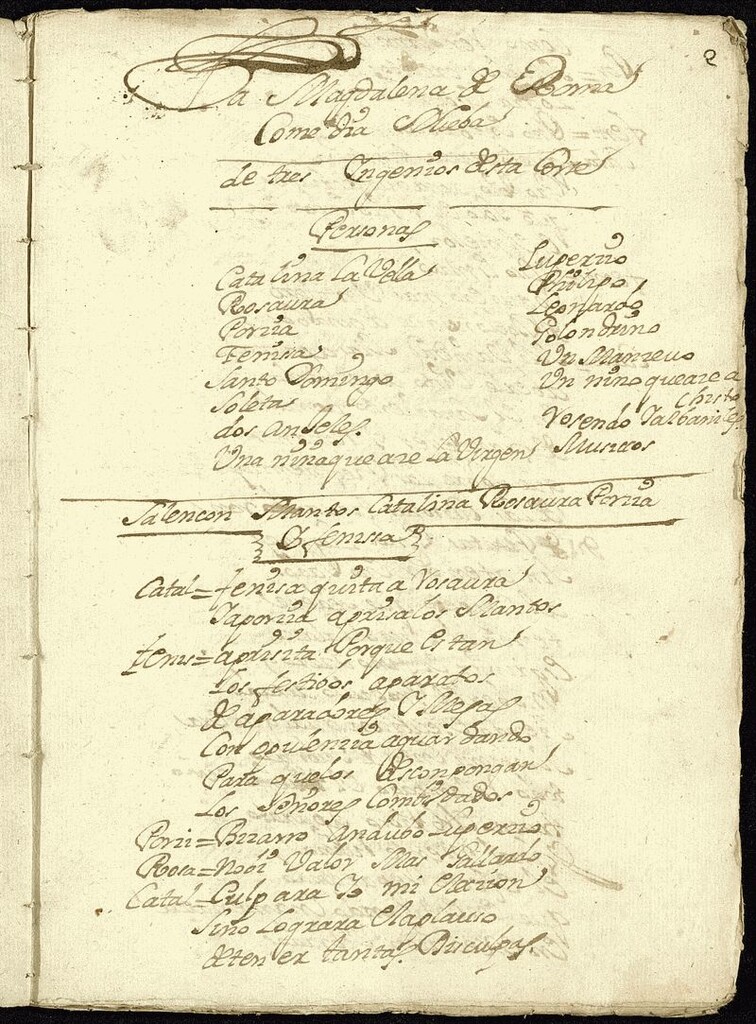 2
La Magdalena de Roma
Comedia Nueba
de tres Ingenios desta Corte
Personas
Catalina La Vella
Rosaura
Porcia
Fenisa
Santo Domingo
Soleta
dos Anjeles
Una niña que aze La Virgen
Lupercio
Philipo
Leonardo
Golondrino
Un Manzevo
Un niño que aze a
Christo
Rosendo
Musicos
Salen con Mantos Catalina Rosaura Porcia
Y fenisa
Catal = fenisa quita a Rosaura
I a porcia aprisa los Mantos
fenis = aprisita Porque Estan
Los festibos aparatos
de aparadores Y Mesas
Con aguardando
Para que los descompongan
Los Señores Combidados
Porci = Bizarro Andubo Lupercio
Rosa = No bi Valor Mas Gallardo
Catal = Culpara Yo mi Elecion
Sino Lograra El aplauso
de tener tantas Disculpas